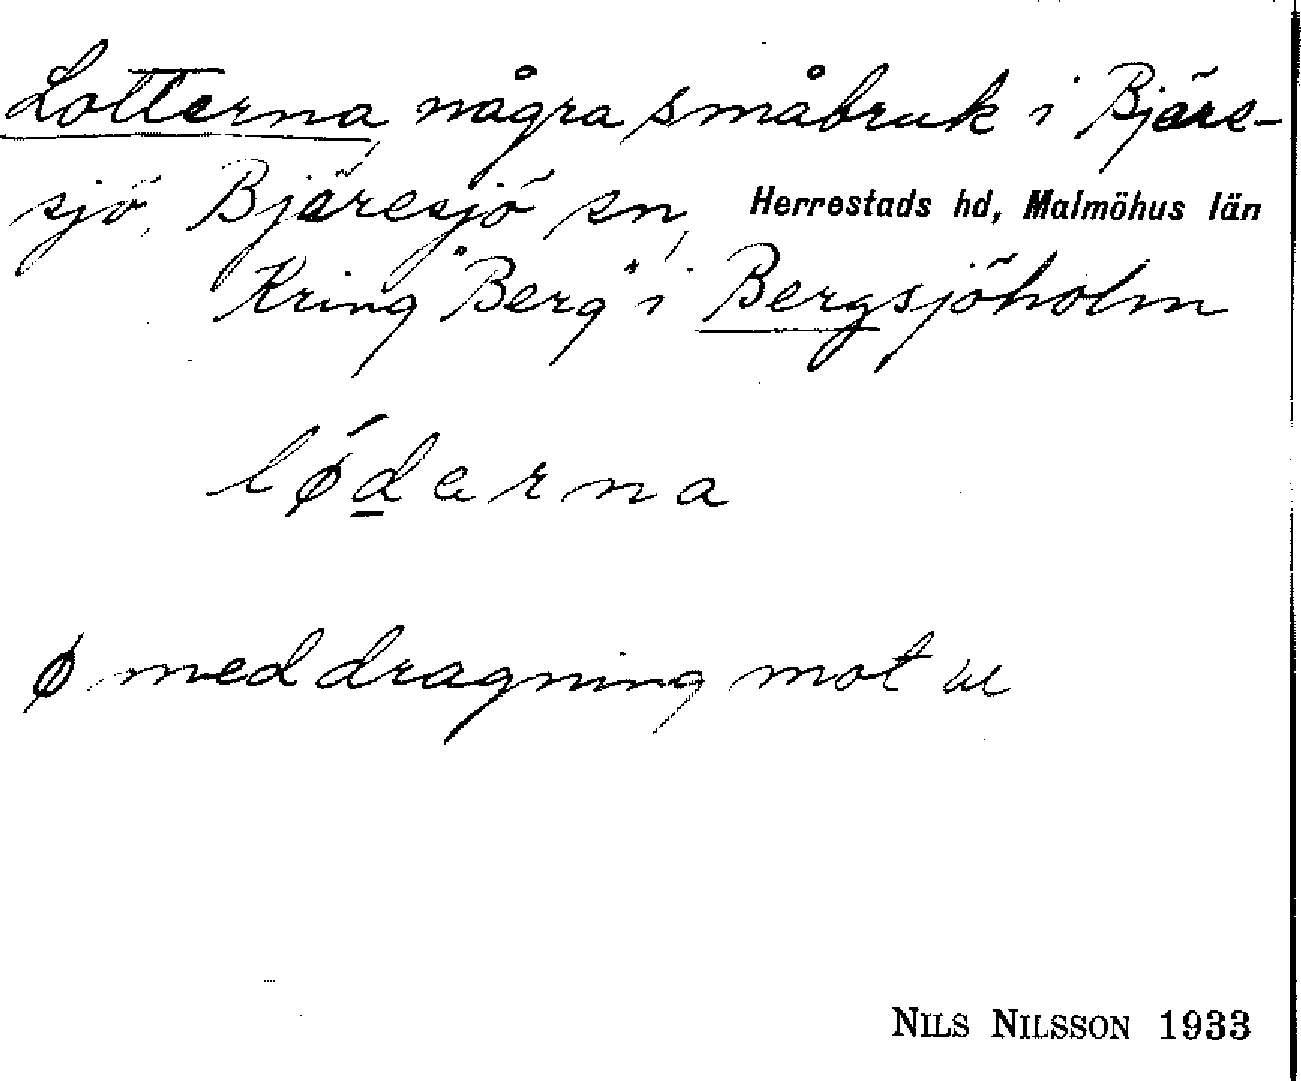 Lotterna, några småbruk i Bjäre-
sjö, Bjäresjö sn, Herrestads hd, Malmöhus län
Kring "Berg" i Bergsjöholm
lǿḏarna
ø med dragning mot æ
NILS NILSSON 1933